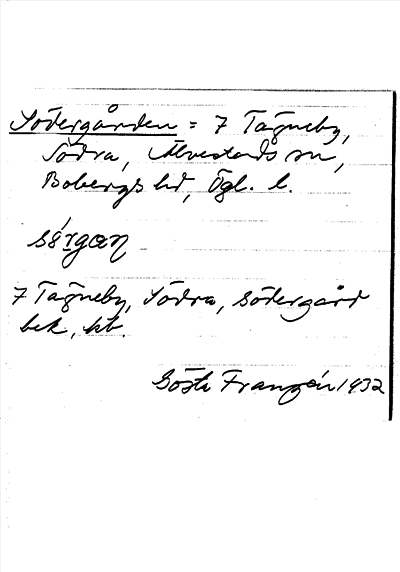 Södergården = 7 Tägneby,
Södra, Alvestads sn,
Bobergs hd, Ögl. l.
sö́rgan
7 Tägneby, Södra, Södergård
bek, kb.
Gösta Franzén 1932